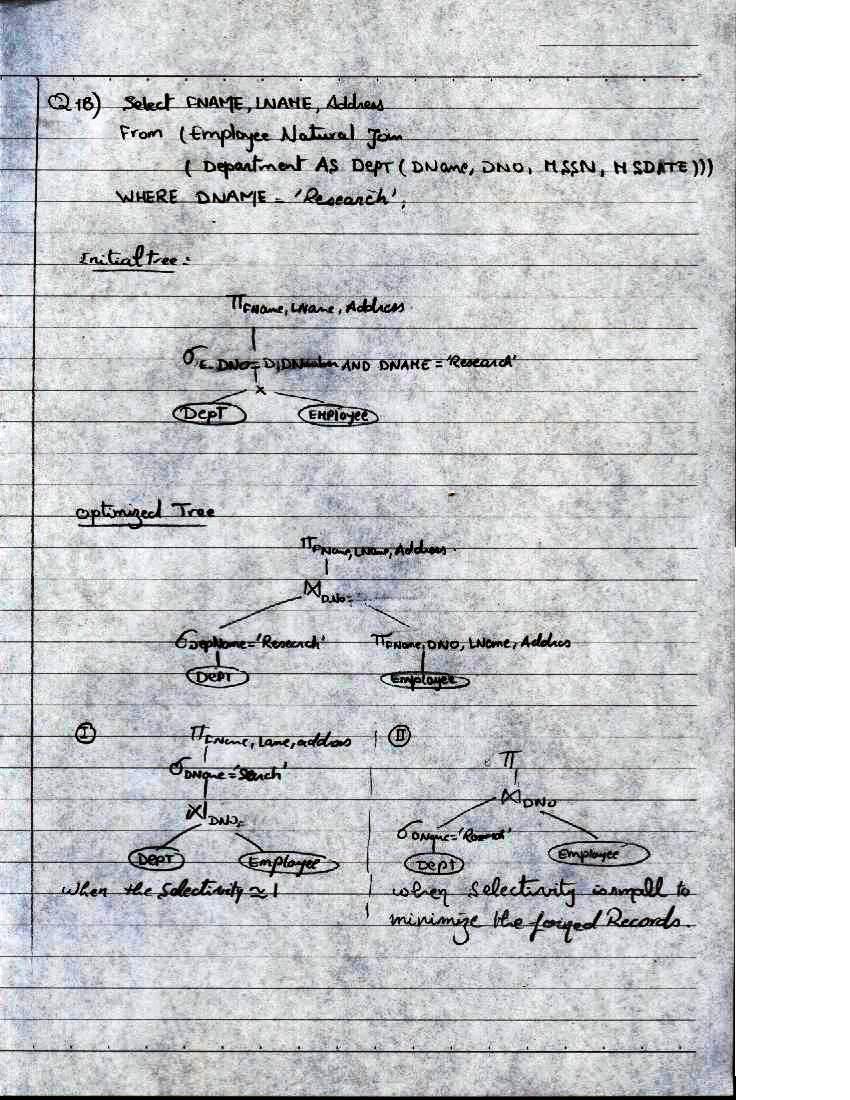 Q 1B) Select FNAME, LNAME, Address
From (Employee Natural Join
( Department AS DepT ( DName, DNO, MSSN, MSDATE )))
WHERE DNAME = 'Research';
Initial tree =
π FName, LName, Address.
σ E.DNO= D.DNumber AND DNAME = 'Research'
×
DepT EMPloyee
optimized Tree
π FName, LName, Address.
⋈ D.No=
σ DepName='Research' π FName, DNO, LName, Address
DepT Employee
I π FName, Lame, address II π
σ DName='Search' ⋈ DNO
⋈ DNO= σ DName='
DepT Employee DepT Employee
When the Selectivity ≈ 1 when Selectivity is small to
minimize the Records.